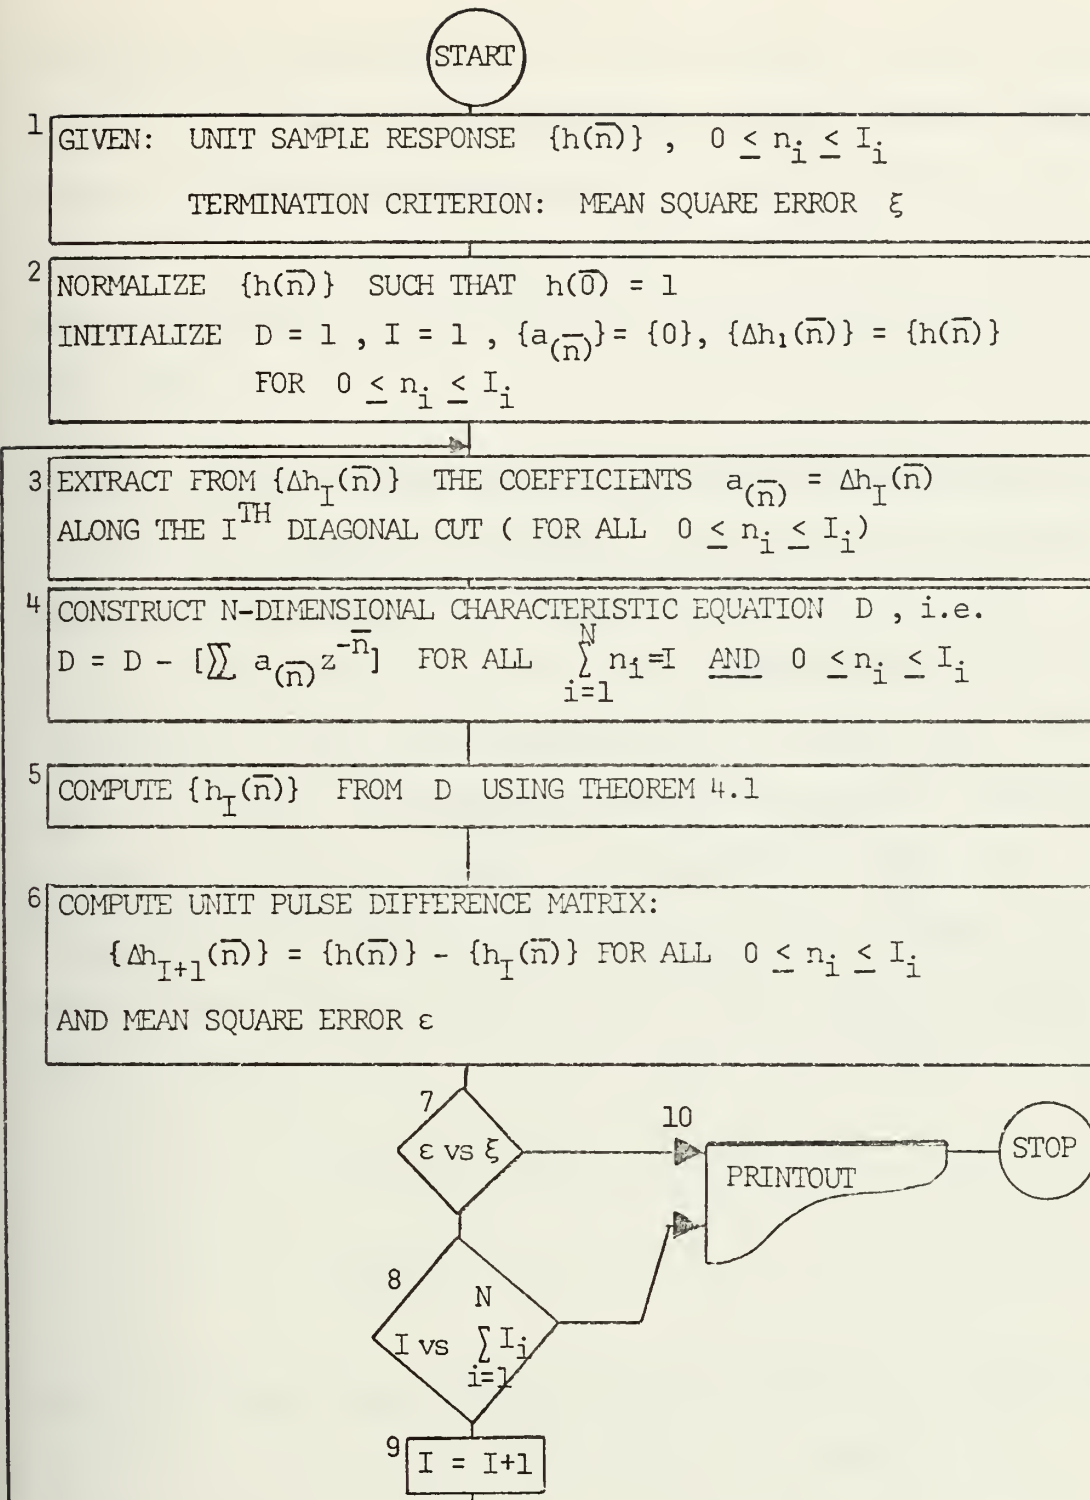 START
1
GIVEN: UNIT SAMPLE RESPONSE {h(n̅)} , 0 ≤ n_i ≤ I_i
TERMINATION CRITERION: MEAN SQUARE ERROR ξ
2
NORMALIZE {h(n̅)} SUCH THAT h(0̅) = 1
INITIALIZE D = 1 , I = 1 , {a_(n̅)} = {0}, {Δh₁(n̅)} = {h(n̅)}
FOR 0 ≤ n_i ≤ I_i
3
EXTRACT FROM {Δh_I(n̅)} THE COEFFICIENTS a_(n̅) = Δh_I(n̅)
ALONG THE I^TH DIAGONAL CUT ( FOR ALL 0 ≤ n_i ≤ I_i)
4
CONSTRUCT N-DIMENSIONAL CHARACTERISTIC EQUATION D , i.e.
D = D - [∑∑ a_(n̅) z^-n̅] FOR ALL ∑_{i=1}^{N} n_i=I AND 0 ≤ n_i ≤ I_i
5
COMPUTE {h_I(n̅)} FROM D USING THEOREM 4.1
6
COMPUTE UNIT PULSE DIFFERENCE MATRIX:
{Δh_I+1(n̅)} = {h(n̅)} - {h_I(n̅)} FOR ALL 0 ≤ n_i ≤ I_i
AND MEAN SQUARE ERROR ε
7
ε vs ξ
10
PRINTOUT
STOP
8
I vs ∑_{i=1}^{N} I_i
9
I = I+1